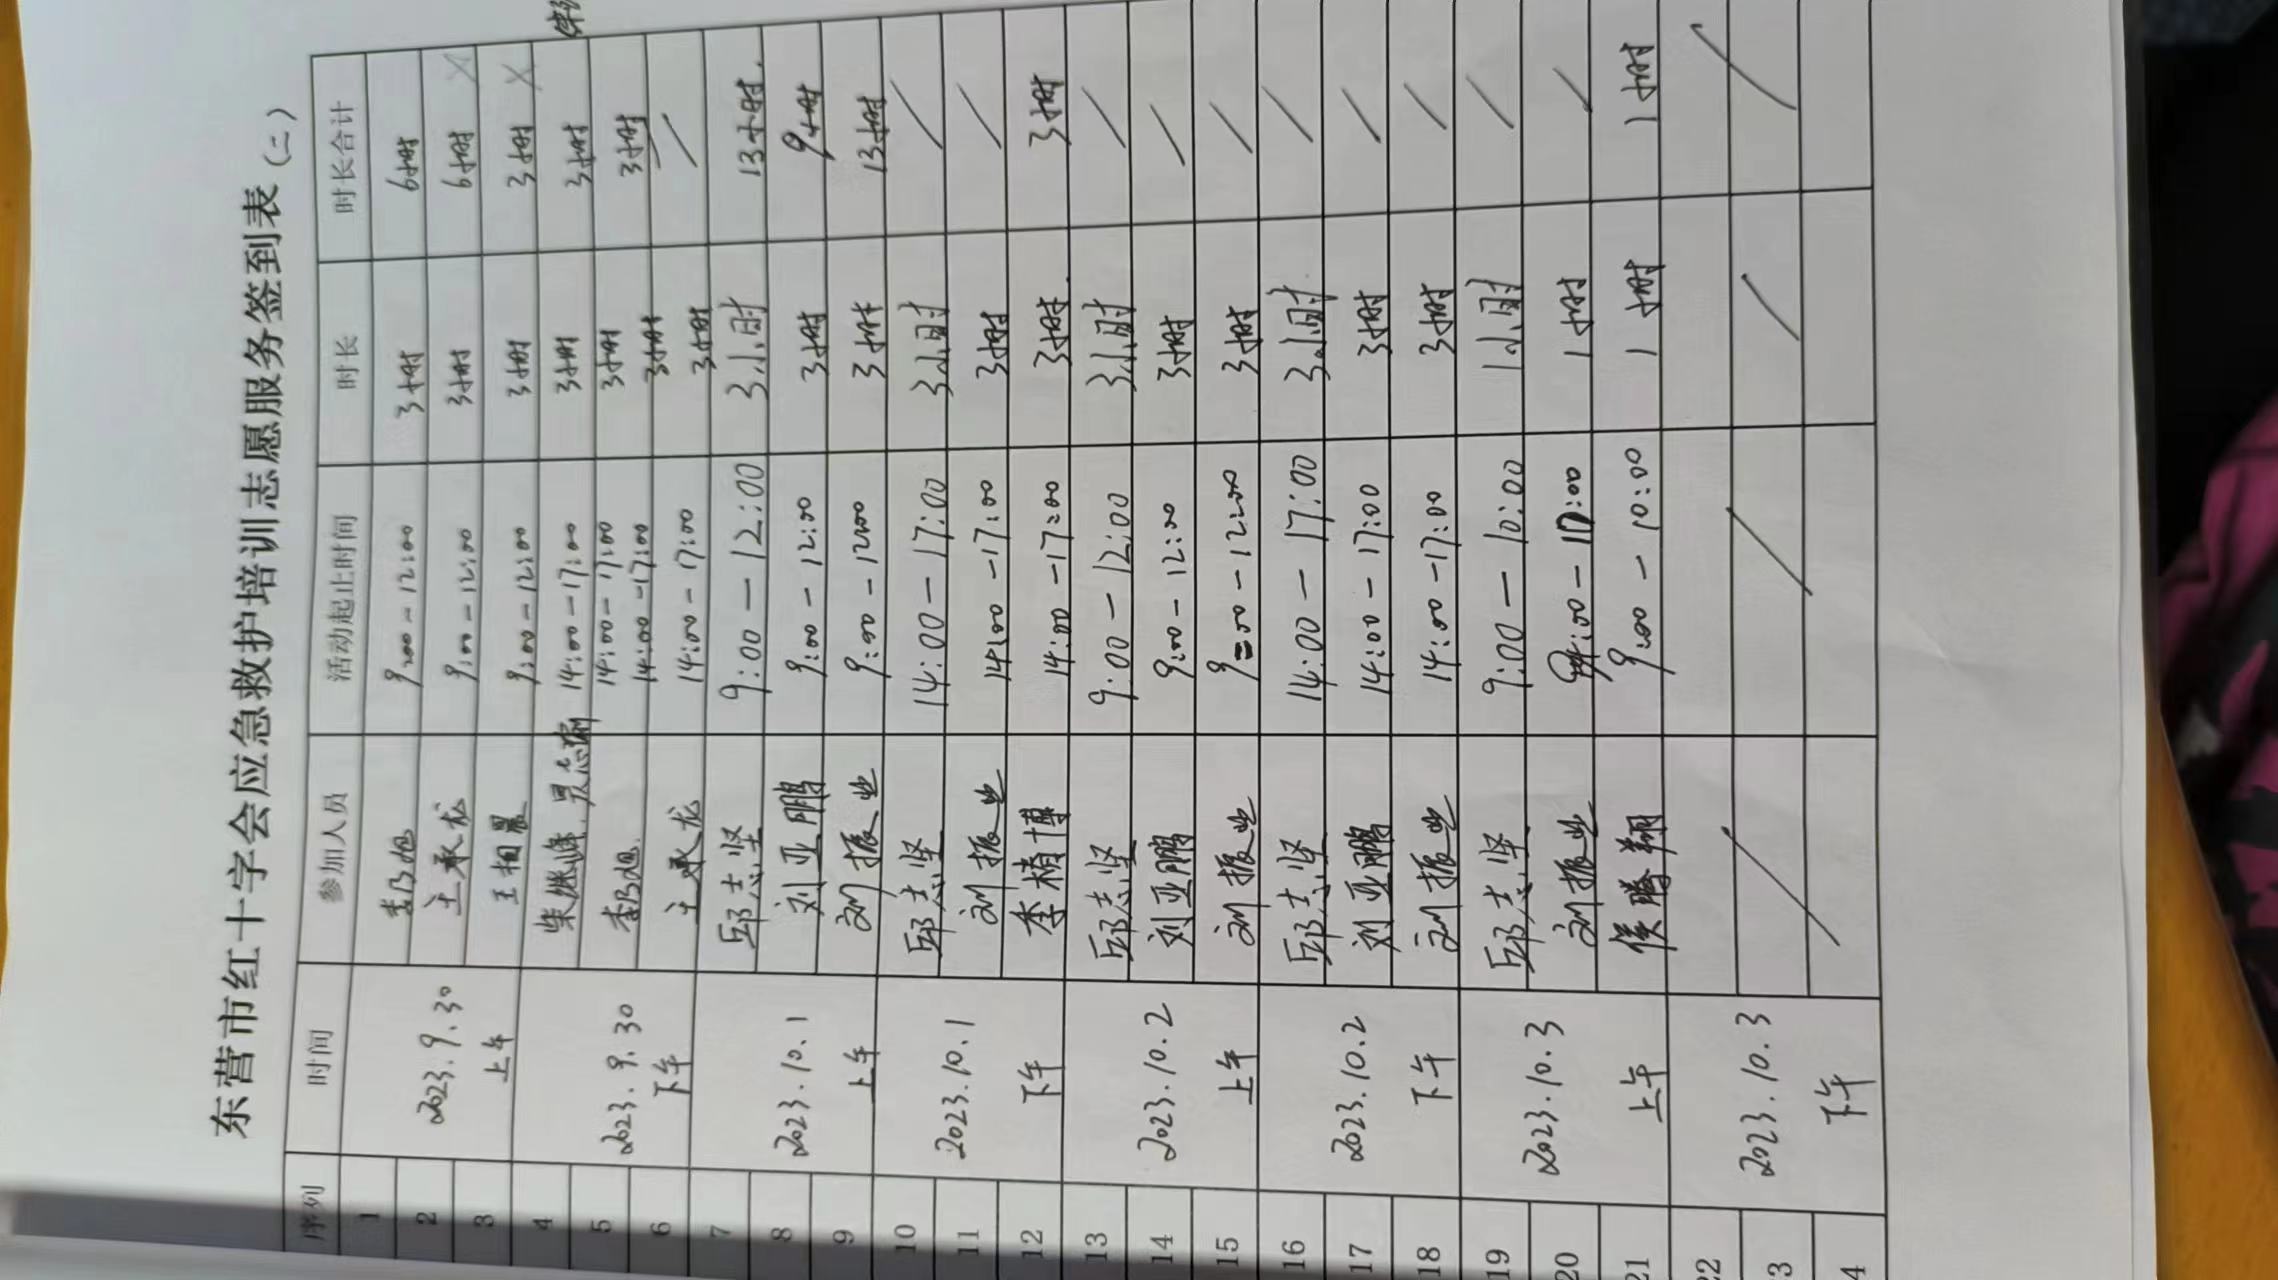 东营市红十字会应急救护培训志愿服务签到表（二）
序列 时间 参加人员 活动起止时间 时长 时长合计
1 2023.9.30 上午 李乃旭 9:00-12:00 3小时 6小时
2 王承龙 9:00-12:00 3小时 6小时
3 王相晨 9:00-12:00 3小时 3小时
4 2023.9.30 下午 柴继峰 14:00-17:00 3小时 3小时
14:00-17:00 3小时 3小时
5 李乃旭 14:00-17:00 3小时
6 王承龙 14:00-17:00 3小时
7 2023.10.1 上午 邱志坚 9:00-12:00 3小时 13小时
8 刘亚鹏 9:00-12:00 3小时 9小时
9 刘振业 9:00-12:00 3小时 13小时
10 2023.10.1 下午 邱志坚 14:00-17:00 3小时
11 刘振业 14:00-17:00 3小时
12 李楠博 14:00-17:00 3小时 3小时
13 2023.10.2 上午 邱志坚 9:00-12:00 3小时
14 刘亚鹏 9:00-12:00 3小时
15 刘振业 9:00-12:00 3小时
16 2023.10.2 下午 邱志坚 14:00-17:00 3小时
17 刘亚鹏 14:00-17:00 3小时
18 刘振业 14:00-17:00 3小时
19 2023.10.3 上午 邱志坚 9:00-10:00 1小时
20 刘振业 9:00-10:00 1小时
21 侯腾翔 9:00-10:00 1小时 1小时
22 2023.10.3 下午
3
4